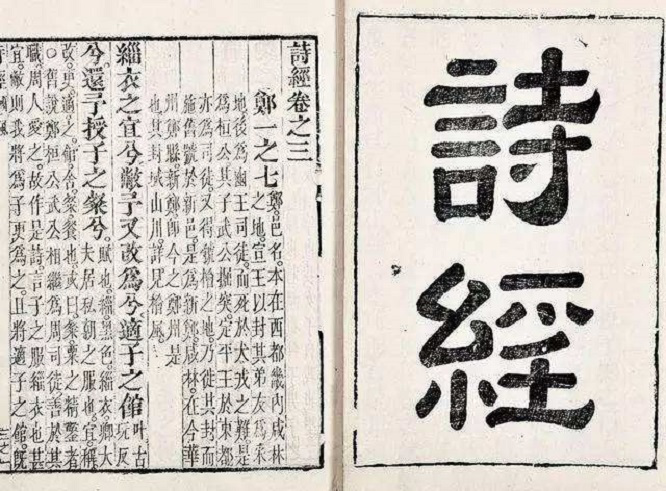 詩經
詩經卷之三
鄭一之七
鄭。邑名。本在西都畿內咸林
之地。宣王以封其弟友為采
地後為幽王司徒。而死於犬戎之難。是
為桓公。其子武公掘突定平王於東都
亦為司徒。又得虢檜之地。乃徙其封而
施舊號於新邑。是為新鄭。咸林。在今華
州鄭縣。新鄭。即今之鄭州是
也。其封域山川。詳見檜風。
緇衣之宜兮。敝予又改為兮。適子之館
叶古
玩反
兮。還予授子之粲兮。
賦也。緇黑色。緇衣。卿大
夫居私朝之服也。宜。稱
改。更。適。之。館。舍。粲。餐也。或曰。粲。粟之精鑿者
○舊說鄭桓公武公相繼為周司徒。善於其
職。周人愛之。故作是詩。言子之服緇衣也。甚
宜。敝則我將為子更為之。且將適子之館。既